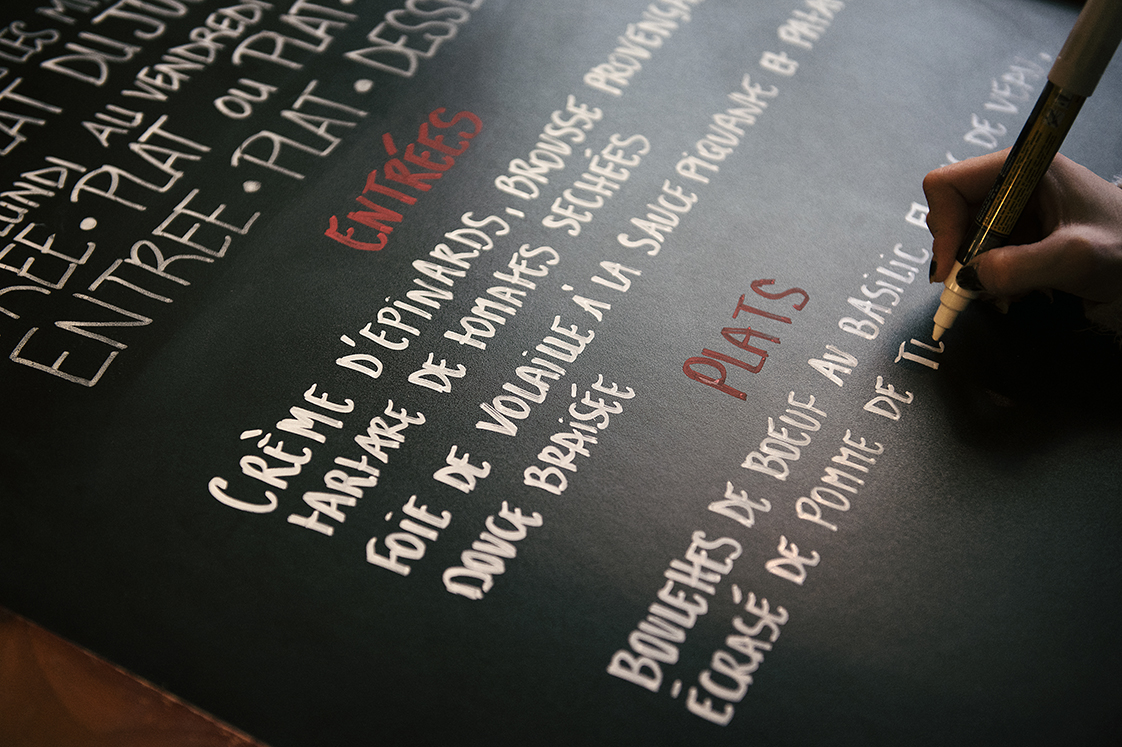 LES
PLAT DU
LUNDI AU VENDREDI
PLAT OU PLAT
ENTREE • PLAT •
ENTRÉES
CRÈME D'EPINARDS, BROUSSE
TARTARE DE TOMATES SECHÉES
FOIE DE VOLAILLE À LA SAUCE PIQUANTE ET
DOUCE BRAISÉE
PLATS
BOULETTES DE BOEUF AU BASILIC DE VEAU,
ÉCRASÉ DE POMME DE